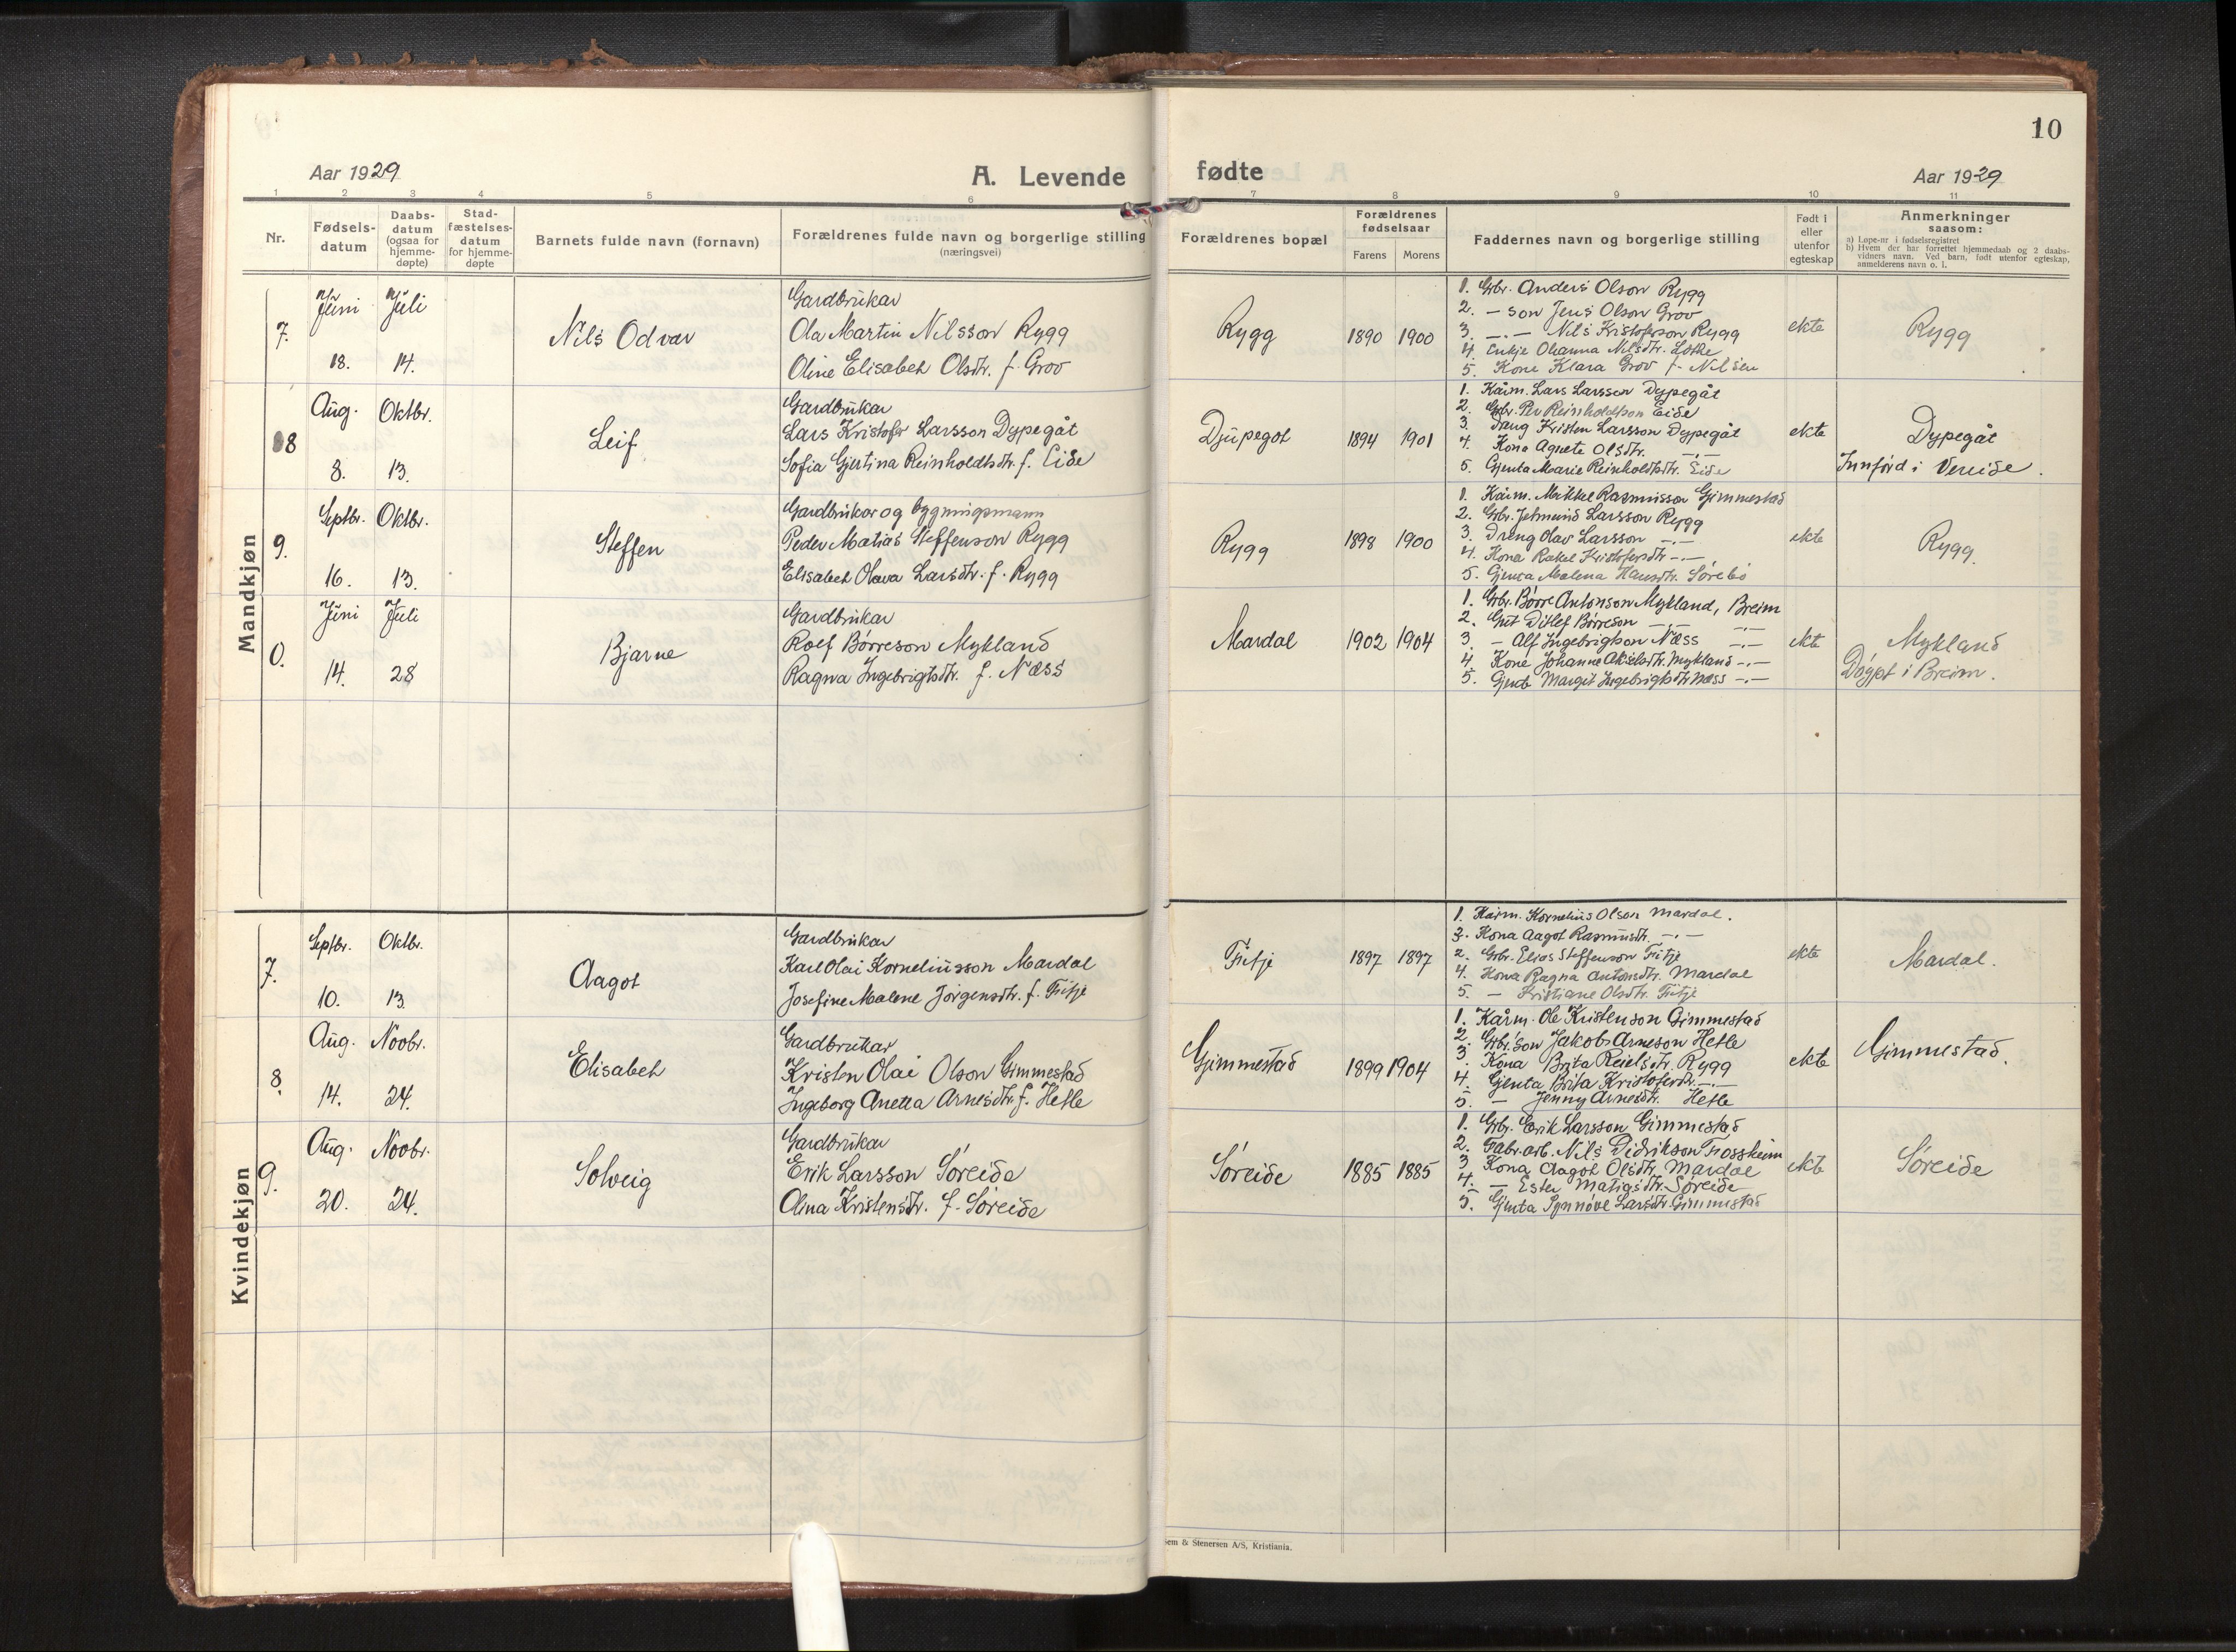 10
Aar 1929
A. Levende fødte
Aar 1929
1 2 3 4 5 6 7 8 9 10 11
Nr.
Fødsels-
datum
Daabs-
datum
(ogsaa for
hjemme-
døpte)
Stad-
fæstelses-
datum
for hjemme-
døpte
Barnets fulde navn (fornavn)
Forældrenes fulde navn og borgerlige stilling
(næringsvei)
Forældrenes bopæl
Forældrenes
fødselsaar
Farens Morens
Faddernes navn og borgerlige stilling
Født i
eller
utenfor
egteskap
Anmerkninger
saasom:
a) Løpe-nr i fødselsregistret
b) Hvem der har forrettet hjemmedaab og 2 daabs-
vidners navn. Ved barn, født utenfor egteskap,
anmelderens navn o. l.
Mandkjøn
7.
Juni
18.
Juli
14.
Nils Odvar
Gardbrukar
Ola Martin Nilsson Rygg
Oline Elisabeh Olsdtr. f. Grov
Rygg
1890 1900
1. Gbr. Anders Olson Rygg
2. — son Jens Olson Grov
3. —.— Nils Kristoferson Rygg
4. Enkje Ohanna Nilsdtr. Lotke
5. Kone Klara Grov f. Nilsen
ekte
Rygg
8
Aug.
8.
Oktbr.
13.
Leif
Gardbrukar
Lars Kristofer Larsson Dypegåt
Sofia Gjertina Reinholdtsdtr. f. Eide
Djupegot
1894 1901
1. Kårm. Lars Larsson Dypegåt
2. Gbr. Per Reinholdtson Eide
3. Dreng Kristen Larsson Dypegåt
4. Kona Agnete Olsdtr. —.—
5. Gjenta Marie Reinholdtsdtr. Eide
ekte
Dypegåt
Innförd i Vereide.
9.
Septbr.
16.
Oktbr.
13.
Steffen
Gardbrukar og bygningsmann
Peder Matias Steffenson Rygg
Elisabeh Olava Larsdtr. f. Rygg
Rygg
1898 1900
1. Kårm. Mikkel Rasmusson Gimmestad
2. Gbr. Jetmund Larsson Rygg
3. Dreng Olav Larsson —.—
4. Kona Rakel Kristofersdtr —.—
5. Gjenta Malena Hansdtr. Sörebö
ekte
Rygg.
0.
Juni
14.
Juli
28
Bjarne
Gardbrukar
Rolf Börreson Mykland
Ragna Ingebrigtsdtr. f. Næss
Mardal
1902 1904
1. Gbr. Börre Antonson Mykland, Breim
2. Gut Ditlef Börreson —.— —.—
3. — Alf Ingebrigtson Næss —.—
4. Kone Johanne Akselsdtr. Mykland —.—
5. Gjenta Margit Ingebrigtsdtr Næss —.—
ekte
Mykland
Döypt i Breim.
Kvindekjøn
7.
Septbr.
10.
Oktbr.
13.
Aagot
Gardbrukar
Karl Olai Korneliusson Mardal
Josefine Malene Jörgensdtr. f. Fitje
Fitje
1897 1897
1. Kårm. Kornelius Olson Mardal.
3. Kona Aagot Rasmusdtr. —.—
2. Gbr. Elias Steffenson Fitje
4. Kona Ragna Antonsdtr. Mardal
5. — Kristiane Olsdtr. Fitje
ekte
Mardal.
8.
Aug.
14.
Novbr.
24.
Elisabeh
Gardbrukar
Kristen Olai Olson Gimmestad
Ingeborg Anetta Arnesdtr. f. Hetle
Gimmestad
1899 1904
1. Kårm. Ole Kristenson Gimmestad
2. Gbr. son Jakob Arneson Hetle
3. Kona Brita Reielsdtr. Rygg
4. Gjenta Brita Kristofersdtr. —.—
5. — Jenny Arnesdtr. Hetle
ekte
Gimmestad.
9.
Aug.
20.
Novbr.
24.
Solveig
Gardbrukar
Erik Larsson Söreide
Olina Kristensdtr. f. Söreide
Söreide
1885 1885
1. Gbr. Erik Larsson Gimmestad
2. Fabr. arb. Nils Didrikson Fossheim
3. Kona Aagot Olsdtr. Mardal
4. — Ester Matiasdtr. Söreide
5. Gjenta Synnöve Larsdtr. Gimmestad
ekte
Söreide
em & Stenersen A/S, Kristiania.